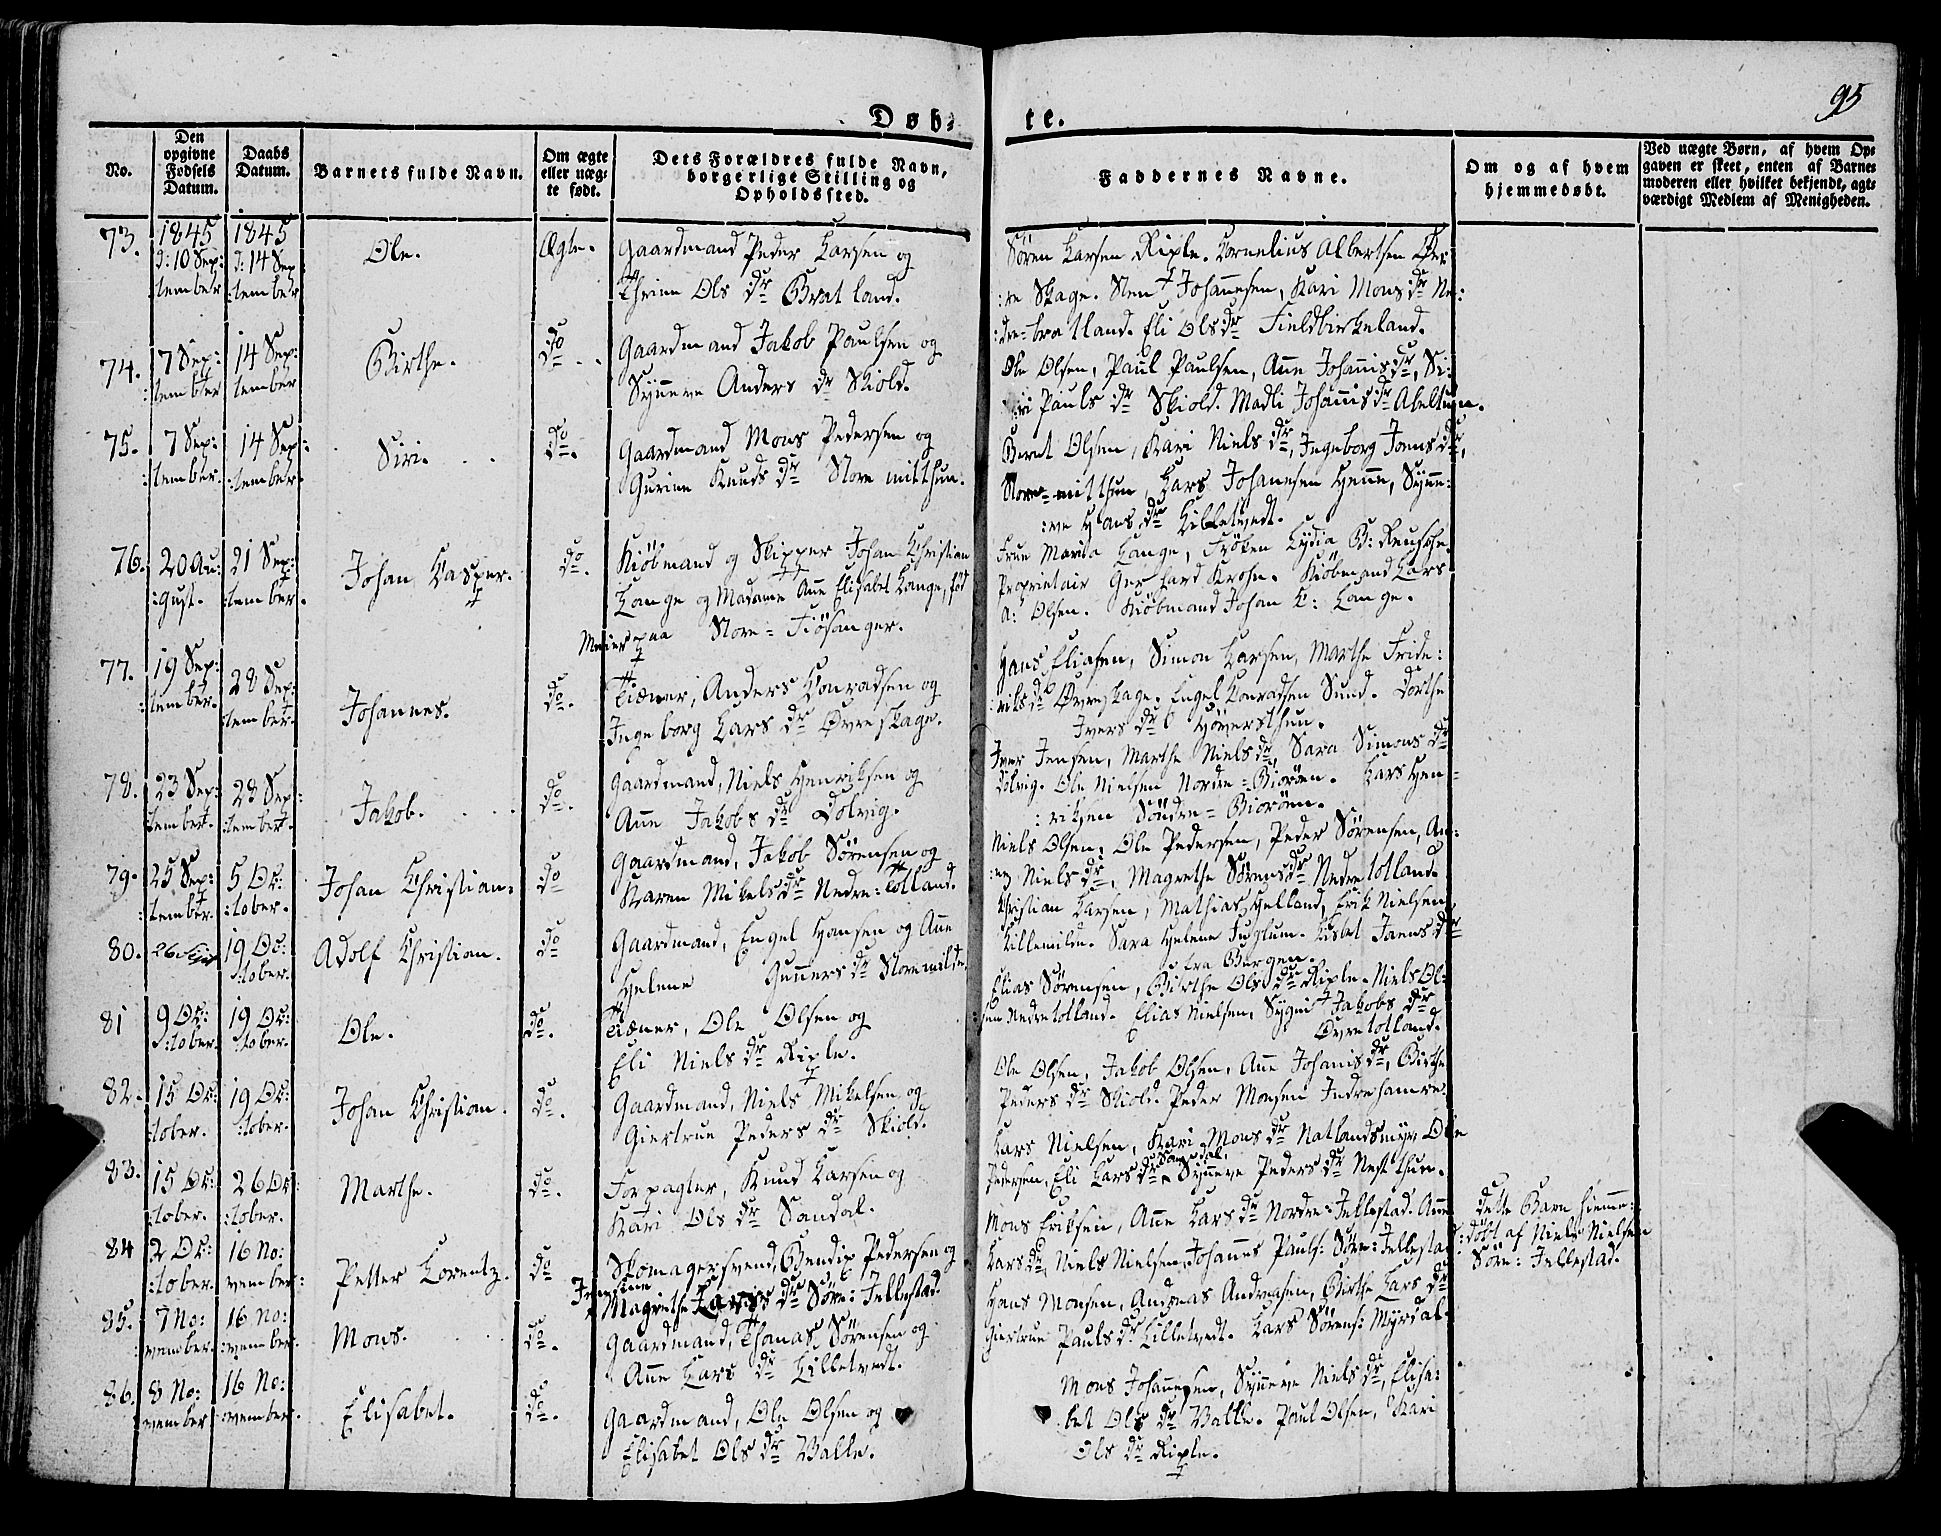 95
Døb-
te.
No.
Den opgivne Fødsels Datum.
Daabs Datum.
Barnets fulde Navn.
Om ægte eller uæg-
te født.
Dets Forældres fulde Navn,
borgerlige Stilling og
Opholdssted.
Faddernes Navne.
Om og af hvem
hjemmedøbt.
Ved uægte Børn, af hvem Op-
gaven er skeet, enten af Barnes
moderen eller hvilket bekjendt, agt-
værdigt Medlem af Menigheden.
73. 1845 d: 10 Sep: :tember 1845 d: 14 Sep: :tember Ole. Ægte.
Gaardmand Peder Larsen og
Thrine Ols dr Bratland.
Søren Larsen Riple. Kornelius Albertsen Øv:
:re Skage. Johannesen, Kari Mons dr Ne:
:dre-bratland. Eli Ols dr Fieldbirkeland.
74. 7 Sep: :tember 14 Sep: :tember Birthe. do
Gaardmand Jakob Paulsen og
Synneve Anders dr Skiold.
Ole Olsen, Paul Paulsen, Ane Johannis dr, Si:
:ri Pauls dr Skiold. Madli Johannis dr
75. 7 Sep: :tember. 14 Sep: :tember. Siri. do.
Gaardmand Mons Pedersen og
Gurine Knuds dr Store mitthun.
Bernt Olsen, Kari Niels dr, Ingeborg Joens dr,
Store-mitthun, Lars Johannesen Henne, Synne:
:ve Hans dr Lilletvedt.
76. 20 Au: :gust. 21 Sep: :tember. Johan Casper. do.
Kiøbmand og Skipper Johan Christian
Lange og Madame Ane Elisabet Lange, fød
Meier paa Store-Fiøsanger.
Frue Maria Lange, Frøken Lydia B:
Proprietair Gerhard Krohn. Kiøbmand Lars
A: Olsen. Kiøbmand Johan C: Lange.
77. 19 Sep: :tember. 28 Sep: :tember. Johannes. do.
Tiæner, Anders Conradsen og
Ingeborg Lars dr Øvreskage.
Hans Eliasen, Simon Larsen, Marthe Fride:
:riks dr Øvreskage. Engel Conradsen Sund. Dorthe
Ivers dr
78. 23 Sep: :tember. 28 Sep: :tember. Jakob. do.
Gaardmand, Niels Henriksen og
Ane Jakobs dr Dolvig.
Iver Jensen, Marthe Niels dr, Sara Simons dr
Dolvig. Ole Nielsen Nordre-Biorøen. Lars Hen-
:riksen Søndre-Biorøen.
79. 25 Sep: :tember. 5 Oc: :tober. Johan Christian. do
Gaardmand, Jakob Sørensen og
Karen Mikels dr Nedre:tolland.
Niels Olsen, Ole Pedersen, Peder Sørensen, An:
:na Niels dr, Magrethe Sørens dr Nedretolland.
80. 26 19 Oc: :tober. Adolf Christian. do
Gaardmand, Engel Hansen og Ane
Helene Gunners dr Storemilde.
Christian Larsen, Mathias Helland, Erik Nielsen
Lillemilde. Sara Helene Lisbet Joens dr
fra Bergen.
81 9 Oc: :tober. 19 Oc: :tober. Ole. do.
Tiæner, Ole Olsen og
Eli Niels dr Riple.
Elias Sørensen, Birthe Ols dr Riple. Niels Ol:
:sen Nedretolland. Elias Nielsen, Jakobs dr
Øvretolland.
82. 15 Oc: :tober. 19 Oc: :tober. Johan Christian. do.
Gaardmand, Niels Mikelsen og
Giertrue Peders dr Skiold.
Ole Olsen, Jakob Olsen, Ane Johanis dr, Birthe
Peders dr Skiold. Peder Monsen Indrehamre.
83. 15 Oc: :tober. 26 Oc: :tober. Marthe. do.
Forpagter, Knud Larsen og
Kari Ols dr Sandal.
Lars Nielsen, Kari Mons dr Natlandsmyr. Ole
Pedersen, Eli Lars dr Sandal, Synneve Peders dr Nestthun.
84 2 Oc: :tober. 16 No: :vember: Petter Lorentz. do
Skomagersvend, Bendix Pedersen og
Magrethe Lars dr Søre: Jellestad.
Mons Eriksen, Ane Lars dr Nordre: Jellestad. Ane
Lars dr, Niels Nielsen, Johannes Pauls: Søre: Jellestad
Dette Barn hiemme:
:døbt af Niels Nielsen
Søre: Jellestad.
85. 7 No: :vember. 16 No: :vember. Mons. do.
Gaardmand, Thomas Sørensen og
Ane Lars dr Lilletvedt.
Hans Monsen, Andreas Andreasen, Birthe Lars dr
Giertrue Pauls dr Lilletvedt. Lars Sørens: Myrdal.
86. 8 No: :vember 16 No: :vember. Elisabet. do.
Gaardmand, Ole Olsen og
Elisabet Ols dr Valle.
Mons Johannesen, Synneve Niels dr, Elisa:
:bet Ols dr Valle. Paul Olsen, Kari
Ols dr Riple.